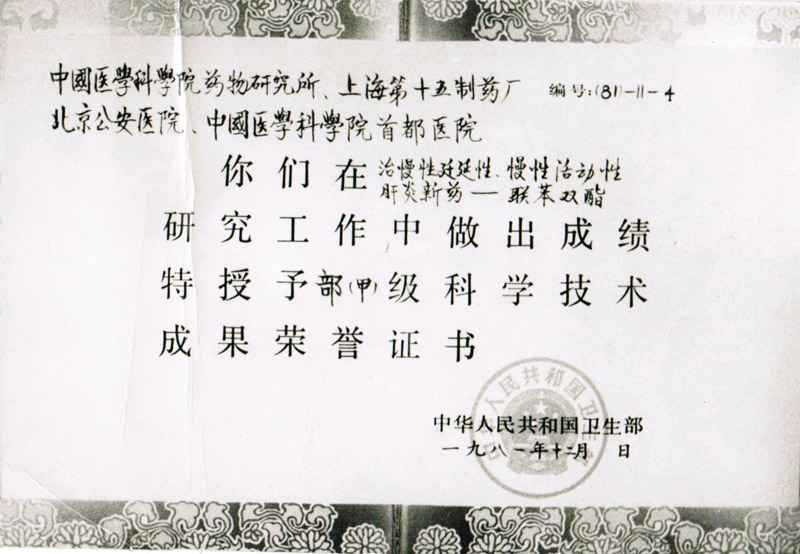 中國医學科學院药物研究所、上海第十五制药厂 编号:(81)-11-4
北京公安医院、中國医學科學院首都医院
你们在治慢性迁延性、慢性活动性
肝炎新药——联苯双酯
研究工作中做出成绩
特授予部(甲)级科学技术
成果荣誉证书
中华人民共和国卫生部
一九八一年十二月 日